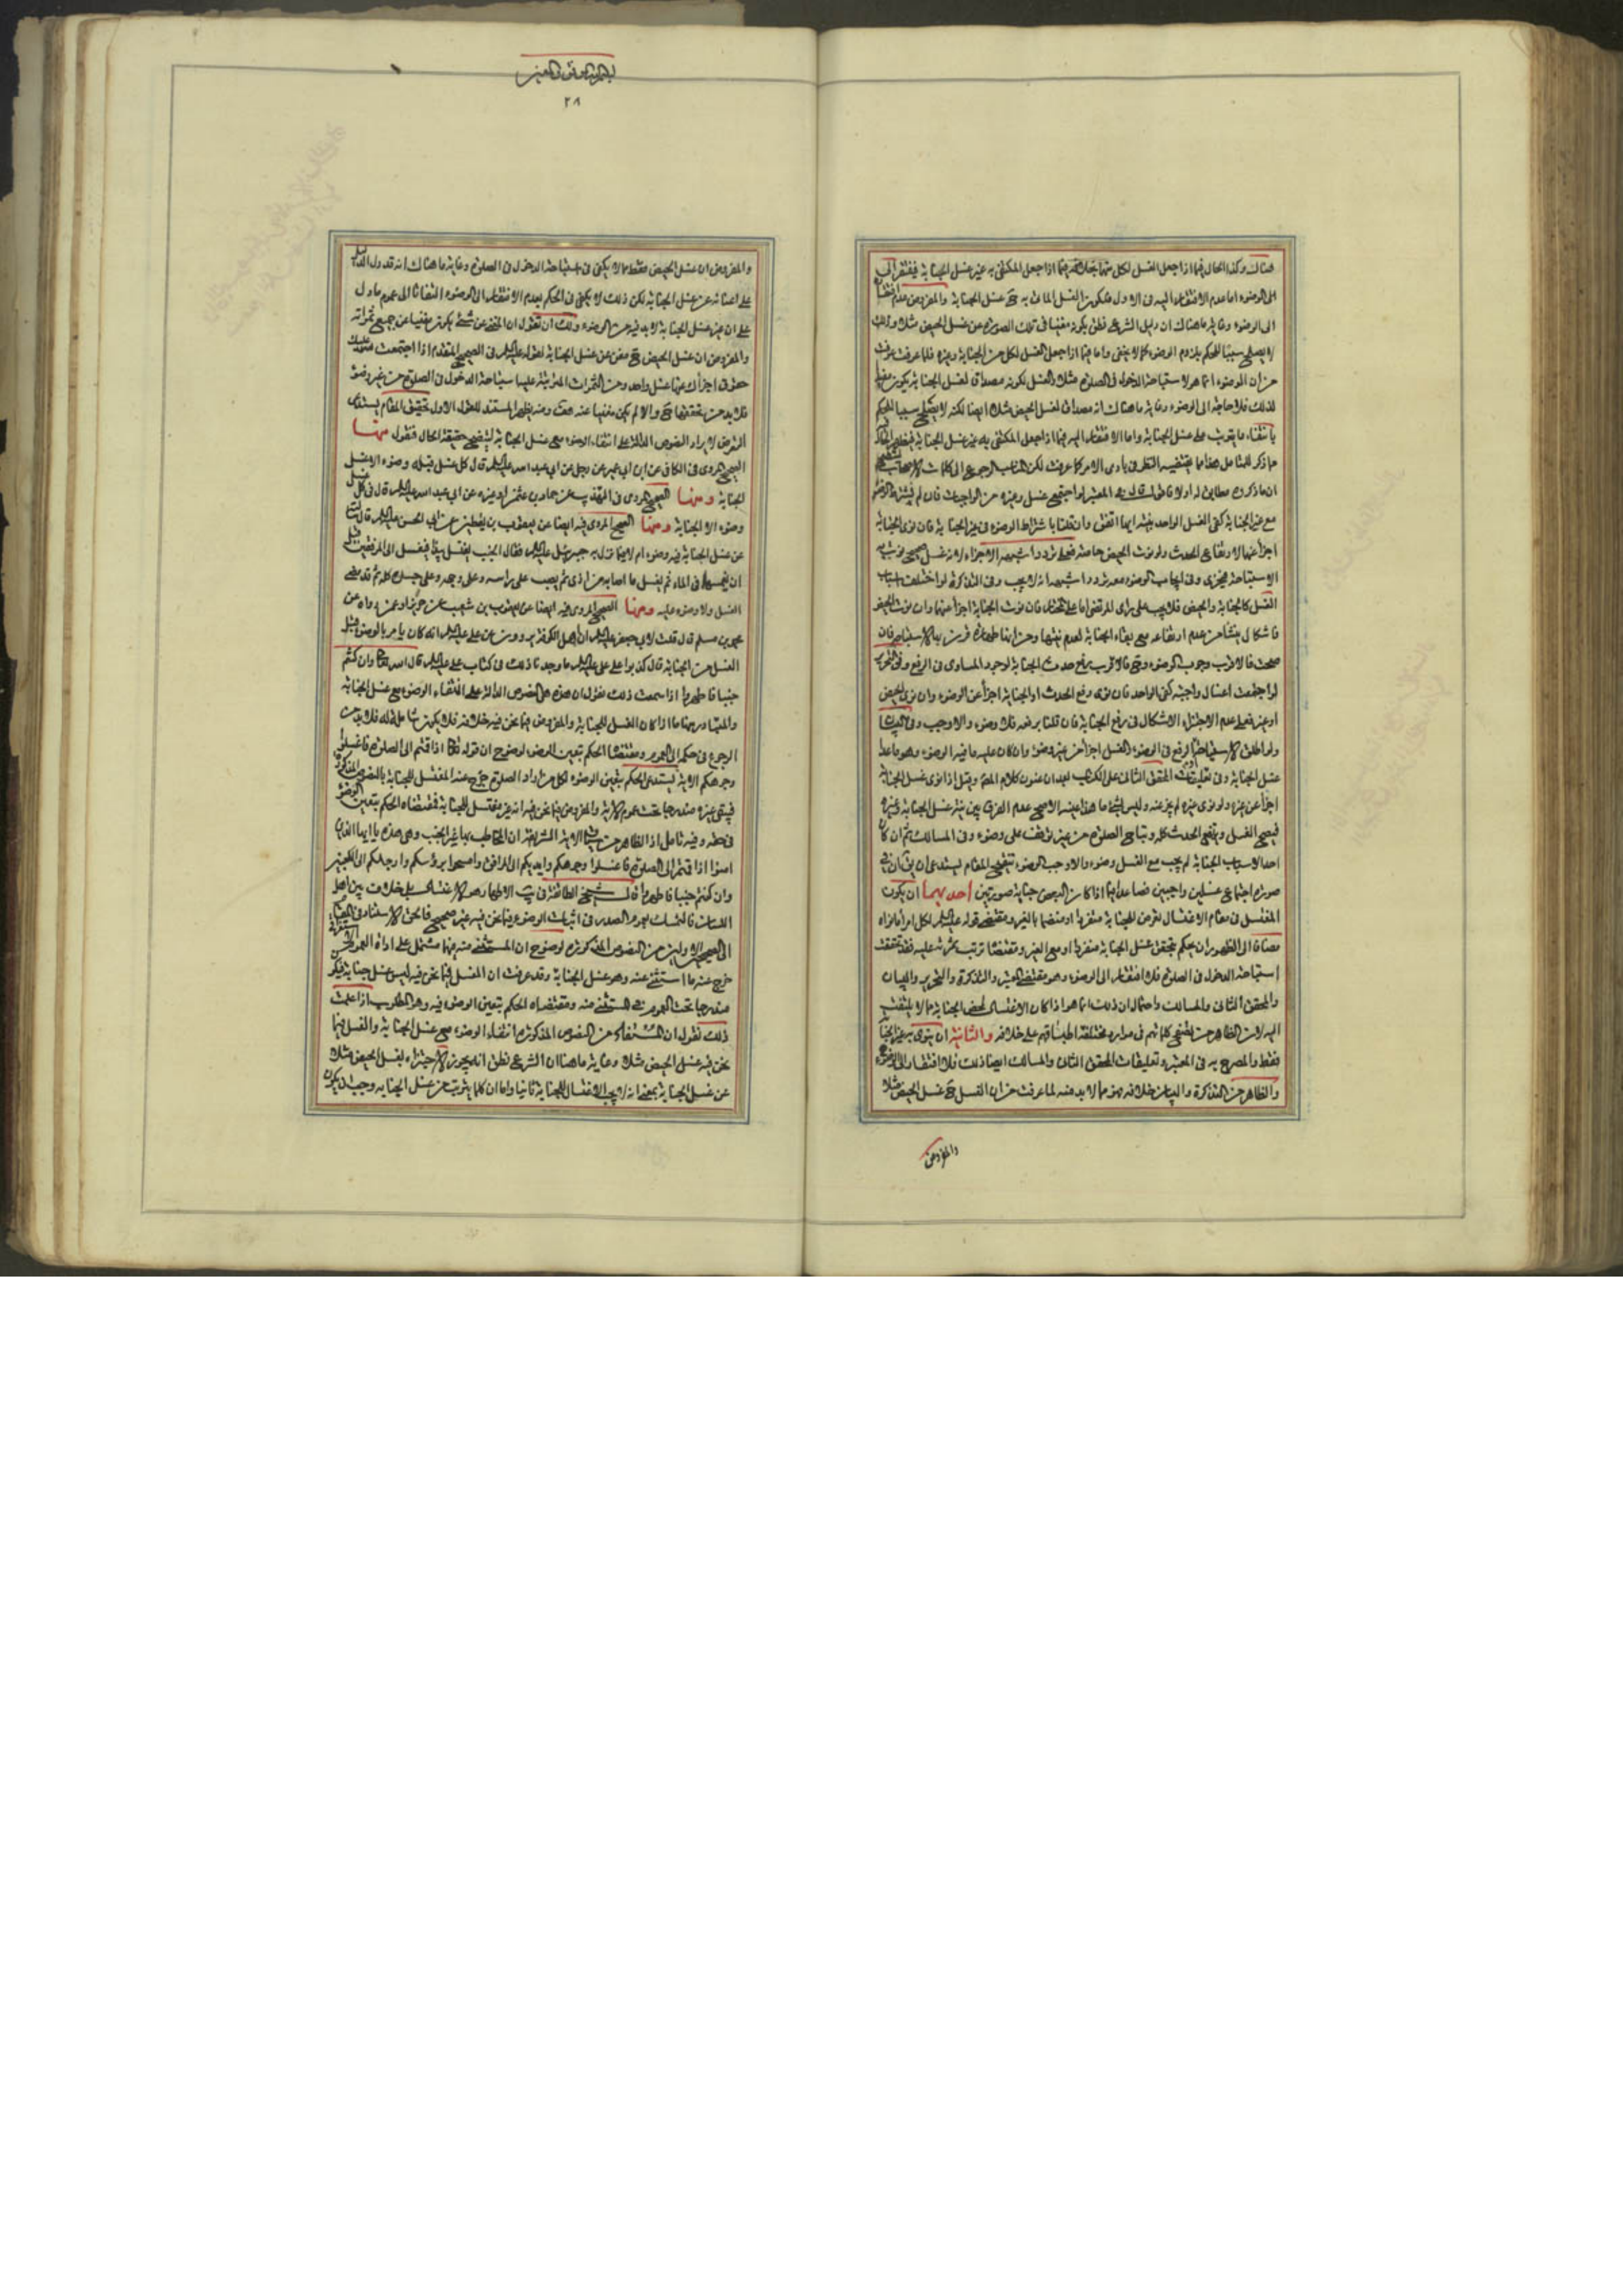 هناك وكذا الحال فيما اذا جعل الغسل لكل منهما بخلافه فيما اذا جعل المكتفى به غير غسل الجنابة فيفتقر الى
الى الوضوء اما عدم الافتقار اليه فى الاول فلكون الغسل الماتى به ح غسل الجنابة والمفروض عدم افتقار
الى الوضوء وغاية ما هناك ان دليل الشرع نطق بكونه مغنيا فى تلك الصورة عن غسل الحيض مثلا وذلك
لا يصلح سببا للحكم بلزوم الوضوء كما لا يخفى واما فيما اذا جعل الغسل لكل من الجنابة وغيره فلما عرفت
من ان الوضوء انما هو لاستباحة الدخول فى الصلوة مثلا والغسل لكونه مصداق لغسل الجنابة يكون مفيدا
لذلك فلا حاجة الى الوضوء وغاية ما هناك انه مصداق لغسل الحيض مثلا ايضا لكنه لا يصلح سببا للحكم
بانتفاء ما يترتب على غسل الجنابة واما الافتقار اليه فيما اذا جعل المكتفى به غير غسل الجنابة
ما ذكر للتامل هذا مما يقتضيه النظر فى بادى الامر كما عرفت لكن المناسب الرجوع الى كلمات الاصحاب
ان ما ذكروه مطابق له اولا قال فى المعتبر لو اجتمع غسل وغيره من الواجبات فان لم نشترط الوضوء
مع غير الجنابة كفى الغسل الواحد بنية ايها اتفق وان قلنا باشتراط الوضوء فى غير الجنابة فان نوى الجنابة
اجزأ عنهما لارتفاع الحدث ولو نوت الحيض خاصة فعلى تردد اشبهه الاجزاء لانه غسل صحيح نوت به
الاستباحة فيجزى وفى ايجاب الوضوء معه تردد اشبهه انه لا يجب وفى التذكرة لو اختلفت اسباب
الغسل كالجنابة والحيض فلا يجب على راى المرتضى اما على المختار فان نوت الجنابة اجزأ عنهما وان نوت الحيض
فاشكال ينشأ من عدم ارتفاعه مع بقاء الجنابة لعدم نيتها ومن انها طهارة قرنت بها الاستباحة فان
صحت فالاقرب وجوب الوضوء وح فالاقرب رفع حدث الجنابة لوجود المساوى فى الرفع وفى التحرير
لو اجتمعت اغسال واجبة كفى الواحد فان نوى رفع الحدث او الجنابة اجزأ عن الوضوء وان نوى الحيض
او غيره فعلى عدم الاجتزاء الاشكال فى رفع الجنابة فان قلنا برفعه فلا وضوء والا وجب وفى البيان
ولو اطلق الاستباحة او الرفع فى الوضوء والغسل اجزأ من غير وضوء وان كان عليه ما فيه الوضوء وهو ماعدا
غسل الجنابة وفى تعليقات المحقق الثانى على الكتاب بعد ان عنون كلام المص وقيل اذا نوى غسل الجنابة
اجزأ عن غيره ولو نوى غيره لم يجز عنه وليس بشئ ما هذا عينه الاصح عدم الفرق بين نية غسل الجنابة وغيره
فيصح الغسل ويرتفع الحدث كله وتباح الصلوة من غير توقف على وضوء وفى المسالك ثم ان كان
احد الاسباب الجنابة لم يجب مع الغسل وضوء والا وجب الوضوء تنقيح المقام يستدعى ان يق ان فى
صورة اجتماع غسلين واجبين فصاعدا فيما اذا كان البعض جنابة صورتين احديهما ان يكون
المغتسل فى مقام الاغتسال تعرض للجنابة منفردا او منضما بالغير ومقتضى قوله عليه السلام لكل امرء ما نواه
مضافا الى الظهور ان يحكم بتحقق غسل الجنابة منفردا او مع الغير ومقتضاه ترتب ثمرته عليه فقد تحققت
استباحة الدخول فى الصلوة فلا افتقار الى الوضوء وهو مقتضى المعتبر والتذكرة والتحرير والبيان
والمحقق الثانى والمسالك واحتمال ان ذلك انما هو اذا كان الاغتسال لمحض الجنابة مما لا يلتفت
اليه لان الظاهر من تصفح كلماتهم فى موارد مختلفة اطباقهم على خلافه والثانية ان ينوى به غير الجنابة
فقط والمصرح به فى المعتبر وتعليقات المحقق الثانى والمسالك ايضا ذلك فلا افتقار الى الوضوء
والظاهر من التذكرة والبيان خلافه وهو مما لا بد منه لما عرفت من ان الغسل ح غسل الحيض مثلا
والمفروض
٢٨
والمفروض ان غسل الحيض فقط مما لا يكفى فى استباحة الدخول فى الصلوة وغاية ما هناك انه قد دل الدليل
على اغنائه عن غسل الجنابة لكن ذلك لا يكفى فى الحكم بعدم الافتقار الى الوضوء التفاتا الى عموم ما دل
على ان غير غسل الجنابة لا بد فيه من الوضوء ولك ان تقول ان المغنى عن شئ يكون مغنيا عن جميع ثمراته
والمفروض ان غسل الحيض ح مغن عن غسل الجنابة لقوله عليه السلام فى الصحيح المتقدم اذا اجتمعت عليك
حقوق اجزأك عنها غسل واحد ومن الثمرات المترتبة عليها استباحة الدخول فى الصلوة من غير وضوء
فلا بد من تحققها ح والا لم يكن مغنيا عنه هف ومنه يظهر المستند للقول الاول تحقيق المقام يستدعى
التعرض لايراد النصوص الدالة على انتفاء الوضوء مع غسل الجنابة ليتضح حقيقة الحال فنقول منها
الصحيح المروى فى الكافى عن ابن ابى عمير عن رجل عن ابى عبد الله عليه السلام قال كل غسل قبله وضوء الا غسل
الجنابة ومنها الصحيح المروى فى التهذيب عن حماد بن عثمان او غيره عن ابى عبد الله عليه السلام قال فى كل غسل
وضوء الا الجنابة ومنها الصحيح المروى فيه ايضا عن يعقوب بن يقطين عن ابى الحسن عليه السلام قال سألته
عن غسل الجنابة فيه وضوء ام لا فيما نزل به جبرئيل عليه السلام فقال الجنب يغتسل يبدأ فيغسل الى المرفقين قبل
ان يغمسهما فى الماء ثم يغسل ما اصابه من اذى ثم يصب على راسه وعلى وجهه وعلى جسده كله ثم قد قضى
الغسل ولا وضوء عليه ومنها الصحيح المروى فيه ايضا عن يعقوب بن شعيب عن حريز او عمن رواه عن
محمد بن مسلم قال قلت لابى جعفر عليه السلام ان اهل الكوفة يروون عن على عليه السلام انه كان يامر بالوضوء قبل
الغسل من الجنابة قال كذبوا على على عليه السلام ما وجدنا ذلك فى كتاب على عليه السلام قال الله تعالى وان كنتم
جنبا فاطهروا اذا سمعت ذلك نقول ان هذه هى النصوص الدالة على انتفاء الوضوء مع غسل الجنابة
والمتبادر منها ما اذا كان الغسل للجنابة والمفروض فيما نحن فيه خلافه فلا يكون شاملة له فلا بد من
الرجوع فى حكمه الى العموم ومقتضاه الحكم بتعين الوضوء لوضوح ان قوله تعالى اذا قمتم الى الصلوة فاغسلوا
وجوهكم الاية يستدعى الحكم بتعين الوضوء لكل من اراد الصلوة خرج عنه المغتسل للجنابة بالنصوص المذكورة
فيبقى غيره مندرجا تحت عموم الاية والمفروض فيما نحن فيه انه غير مغتسل للجنابة فمقتضاه الحكم بتعين الوضوء
فى حقه وفيه تامل اذ الظاهر من سياق الاية الشريفة ان المخاطب بها غير الجنب وهى هذه يا ايها الذين
امنوا اذا قمتم الى الصلوة فاغسلوا وجوهكم وايديكم الى المرافق وامسحوا برؤسكم وارجلكم الى الكعبين
وان كنتم جنبا فاطهروا قال شيخ الطائفة فى يب الاطهار هو الاغتسال بلا خلاف بين اهل
اللسان فالتمسك بعموم الصدر فى اثبات الوضوء فيما نحن فيه غير صحيح فالحق الاستناد فى المقام
الى الصحيحين الاولين من النصوص المذكورة لوضوح ان المستثنى منه فيهما مشتمل على اداة العموم
خرج عنه ما استثنى عنه وهو غسل الجنابة وقد عرفت ان الغسل فيما نحن فيه ليس غسل جنابة فيكون
مندرجا تحت العموم فى المستثنى منه ومقتضاه الحكم بتعين الوضوء فيه وهو المطلوب اذا علمت
ذلك نقول ان المستفاد من النصوص المذكورة انتفاء الوضوء مع غسل الجنابة والغسل فيما
نحن فيه غسل الحيض مثلا وغاية ما هنا ان الشرع نطق انه يجوز الاجتزاء بغسل الحيض مثلا
عن غسل الجنابة بمعنى انه لا يجب الاغتسال للجنابة ثانيا واما ان كلما يترتب على غسل الجنابة وجب ان يكون